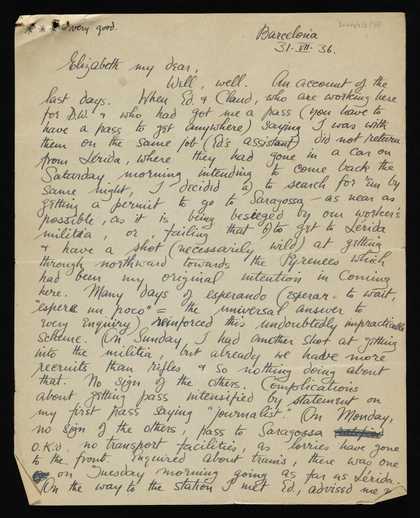 * * * = very good.
Barcelona
31. VII. 36.
Elizabeth my dear,
Well, well. An account of the
last days. When Ed. & Claud, who are working here
for D.W. & who had got me a pass (you have to
have a pass to get anywhere) saying I was with
them on the same job (Ed's assistant) did not return
from Lérida, where they had gone in a car on
Saturday morning intending to come back the
same night, I decided to search for 'em by
getting a permit to go to Saragossa – as near as
possible, as it is being besieged by our worker's
militia, or, failing that to get to Lérida
& have a shot (necessarily wild) at getting
through northward towards the Pyrenees which
had been my original intention in coming
here. Many days of esperando (esperar = to wait,
"espere un poco" = the universal answer to
every enquiry) reinforced this undoubtedly impracticable
scheme. On Sunday I had another shot at getting
into the militia, but already we have more
recruits than rifles & so nothing doing about
that. No sign of the others. Complications
about getting pass intensified by statement on
my first pass saying "journalist". On Monday,
no sign of the others, pass to Saragossa
O.K.d. no transport facilities, as lorries have gone
to the front. Enquired about trains, there was one
on Tuesday morning going as far as Lérida.
On the way to the station I met Ed, advised me